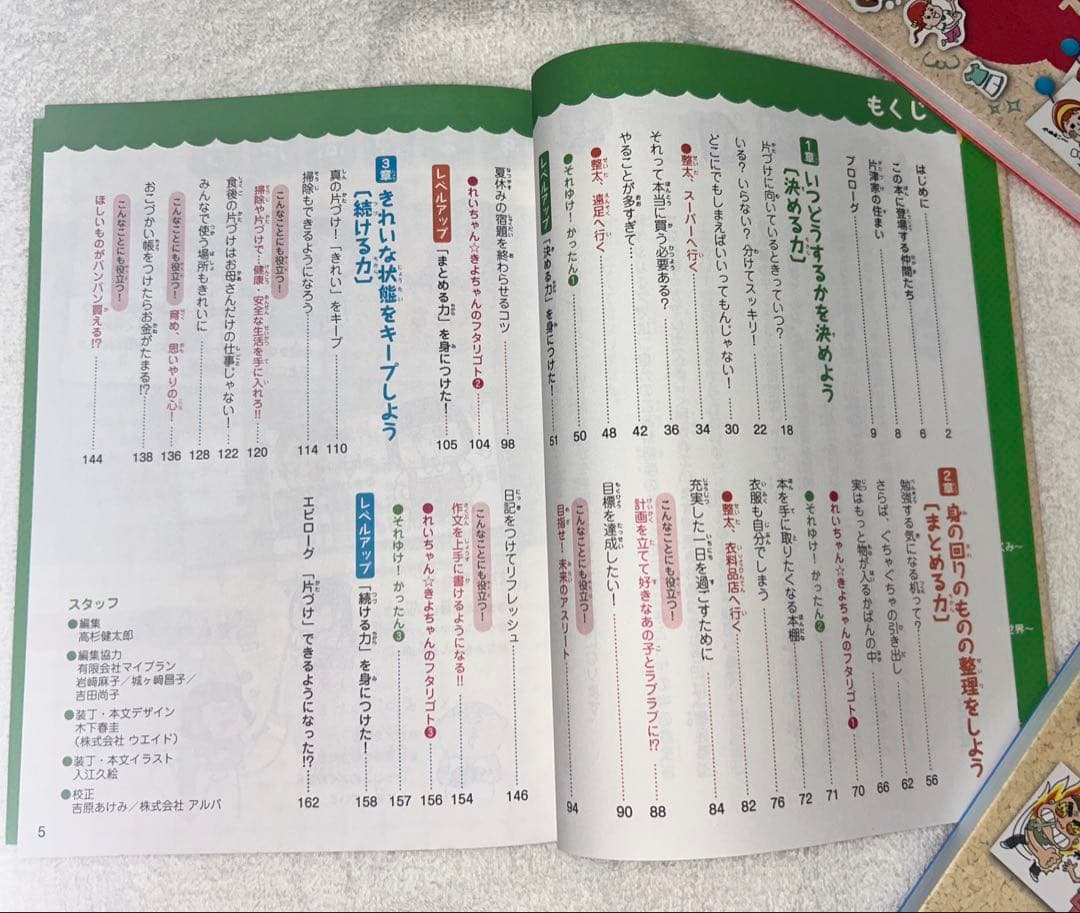 もくじ
はじめに 2
この本に登場する仲間たち 6
片津家の住まい 8
プロローグ 9
1章 いつどうするかを決めよう
〔決める力〕
片づけに向いているときっていつ？ 18
いる？ いらない？ 分けてスッキリ！ 22
どこにでもしまえばいいってもんじゃない！ 30
●整太、スーパーへ行く 34
それって本当に買う必要ある？ 36
やることが多すぎて… 42
●整太、遠足へ行く 48
●それゆけ！かったん❶ 50
レベルアップ 「決める力」を身につけた！ 51
2章 身の回りのものの整理をしよう
〔まとめる力〕 56
勉強する気になる机って？ 62
さらば、ぐちゃぐちゃの引き出し 66
実はもっと物が入るかばんの中 70
●れいちゃん☆きよちゃんのフタリゴト❶ 71
●それゆけ！かったん❷ 72
本を手に取りたくなる本棚 76
衣服も自分でしまう 82
●整太、衣料品店へ行く 84
充実した一日を過ごすために
こんなことにも役立つ！
計画を立てて好きなあの子とラブラブに!? 88
目標を達成したい！ 90
こんなことにも役立つ！
目指せ！未来のアスリート 94
夏休みの宿題を終わらせるコツ 98
●れいちゃん☆きよちゃんのフタリゴト❷ 104
レベルアップ 「まとめる力」を身につけた！ 105
3章 きれいな状態をキープしよう
〔続ける力〕
真の片づけ！「きれい」をキープ 110
掃除もできるようになろう 114
こんなことにも役立つ！
掃除や片づけで…健康・安全な生活を手に入れろ!! 120
食後の片づけはお母さんだけの仕事じゃない！ 122
みんなで使う場所もきれいに 128
こんなことにも役立つ！ 育め、思いやりの心！ 136
おこづかい帳をつけたらお金がたまる!? 138
こんなことにも役立つ！
ほしいものがバンバン買える!? 144
日記をつけてリフレッシュ 146
こんなことにも役立つ！
作文を上手に書けるようになる!! 154
●れいちゃん☆きよちゃんのフタリゴト❸ 156
●それゆけ！かったん❸ 157
レベルアップ 「続ける力」を身につけた！ 158
エピローグ 「片づけ」できるようになった!? 162
スタッフ
●編集
高杉健太郎
●編集協力
有限会社マイプラン
岩﨑麻子／城ヶ﨑昌子／
吉田尚子
●装丁・本文デザイン
木下春圭
（株式会社 ウエイド）
●装丁・本文イラスト
入江久絵
●校正
吉原あけみ／株式会社 アルバ
5
世界〜